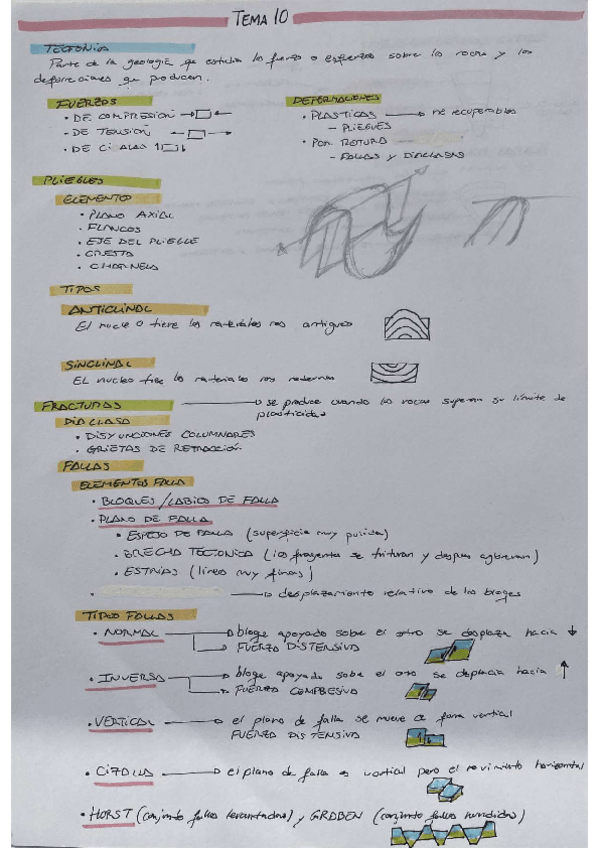 TEMA 10
TECTONICA
Parte de la geología que estudia las fuerzas o esfuerzos sobre las rocas y las
deformaciones que producen.
FUERZAS
DEFORMACIONES
• DE COMPRESIÓN
• PLASTICAS → no recuperables
• DE TENSIÓN
- PLIEGUES
• DE CIZALLA
• POR ROTURA
- FALLAS Y DIACLASAS
PLIEGUES
ELEMENTOS
• PLANO AXIAL
• FLANCOS
• EJE DEL PLIEGUE
• CRESTA
• CHARNELA
TIPOS
ANTICLINAL
El nucleo tiene los materiales mas antiguos
SINCLINAL
EL nucleo tiene los materiales mas modernos
FRACTURAS → se produce cuando las rocas superan su límite de
plasticidad
DIACLASA
• DISYUNCIONES COLUMNARES
• GRIETAS DE RETRACCIÓN
FALLAS
ELEMENTOS FALLA
• BLOQUES / LABIOS DE FALLA
• PLANO DE FALLA
• ESPEJO DE FALLA (superficie muy pulida)
• BRECHA TECTONICA (los fragmentos se trituran y despues aglomeran)
• ESTRÍAS (lineas muy finas)
• → desplazamiento relativo de los bloques
TIPOS FALLAS
• NORMAL → bloque apoyado sobre el otro se desplaza hacia ↓
→ FUERZA DISTENSIVA
• INVERSA → bloque apoyado sobre el otro se desplaza hacia ↑
→ FUERZA COMPRESIVA
• VERTICAL → el plano de falla se mueve de forma vertical
FUERZA DISTENSIVA
• CIZALLA → el plano de falla es vertical pero el movimiento horizontal
• HORST (conjunto fallas levantadas) y GRABEN (conjunto fallas hundidas)